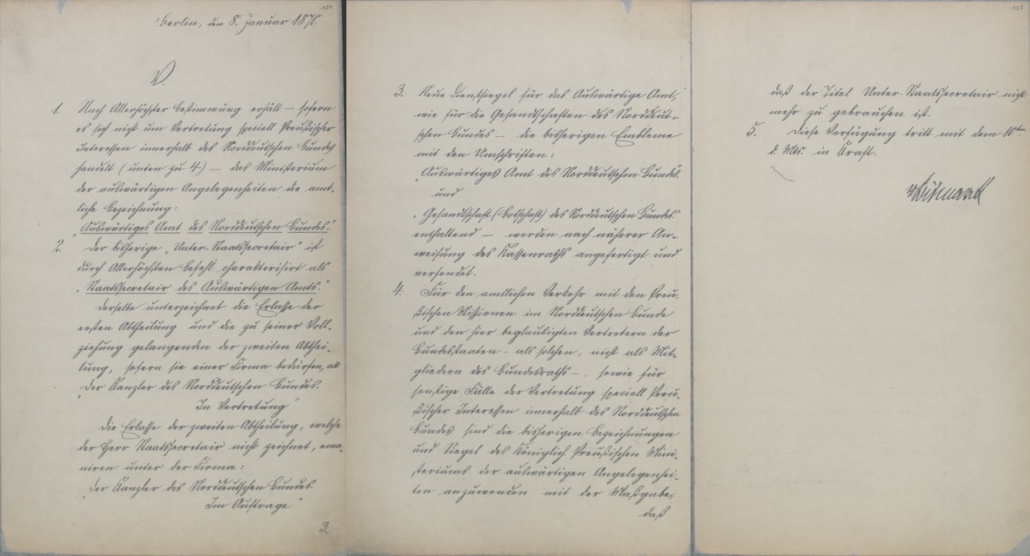 Berlin, den 8. Januar 1870.
V.
1. Nach Allerhöchster Bestimmung erhält – sofern
es sich nicht um Vertretung speciell Preußischer
Interessen innerhalb des Norddeutschen Bundes
handelt (unten zu 4) – das Ministerium
der auswärtigen Angelegenheiten die amt-
liche Bezeichnung:
"Auswärtiges Amt des Norddeutschen Bundes."
2. Der bisherige "Unter-Staatssecretair" ist
durch Allerhöchsten Befehl charakterisirt als
"Staatssecretair des Auswärtigen Amts."
Derselbe unterzeichnet die Erlasse der
ersten Abtheilung und die zu seiner Voll-
ziehung gelangenden der zweiten Abthei-
lung, sofern sie einer Firma bedürfen, als
"Der Kanzler des Norddeutschen Bundes.
In Vertretung"
Die Erlasse der zweiten Abtheilung, welche
der Herr Staatssecretair nicht zeichnet, ema-
niren unter der Firma:
"Der Kanzler des Norddeutschen Bundes.
Im Auftrage"
3.
3. Neue Dienstsiegel für das Auswärtige Amt,
wie für die Gesandtschaften des Norddeut-
schen Bundes – die bisherigen Embleme
mit den Umschriften:
"Auswärtiges Amt des Norddeutschen Bundes"
und
"Gesandtschaft (Botschaft) des Norddeutschen Bundes"
enthaltend – werden nach näherer An-
weisung des Kassenraths angefertigt und
versendet.
4. Für den amtlichen Verkehr mit den Preu-
ßischen Missionen im Norddeutschen Bunde
und den hier beglaubigten Vertretern der
Bundesstaaten – als solchen, nicht als Mit-
gliedern des Bundesraths –, sowie für
sonstige Fälle der Vertretung speciell Preu-
ßischer Interessen innerhalb des Norddeutschen
Bundes sind die bisherigen Bezeichnungen
und Siegel des Königlich Preußischen Mini-
steriums der auswärtigen Angelegenhei-
ten anzuwenden mit der Maßgabe,
daß
daß der Titel Unter-Staatssecretair nicht
mehr zu gebrauchen ist.
5. Diese Verfügung tritt mit dem
d. Mts. in Kraft.
v Bismarck